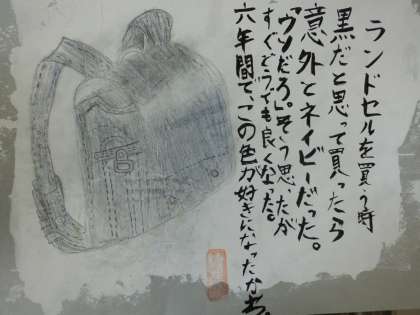 ランドセルを買う時
黒だと思って買ったら
意外とネイビーだった。
「ウソだろ」。そう思ったが
すぐどうでも良くなった。
六年間で、この色が好きになったから。